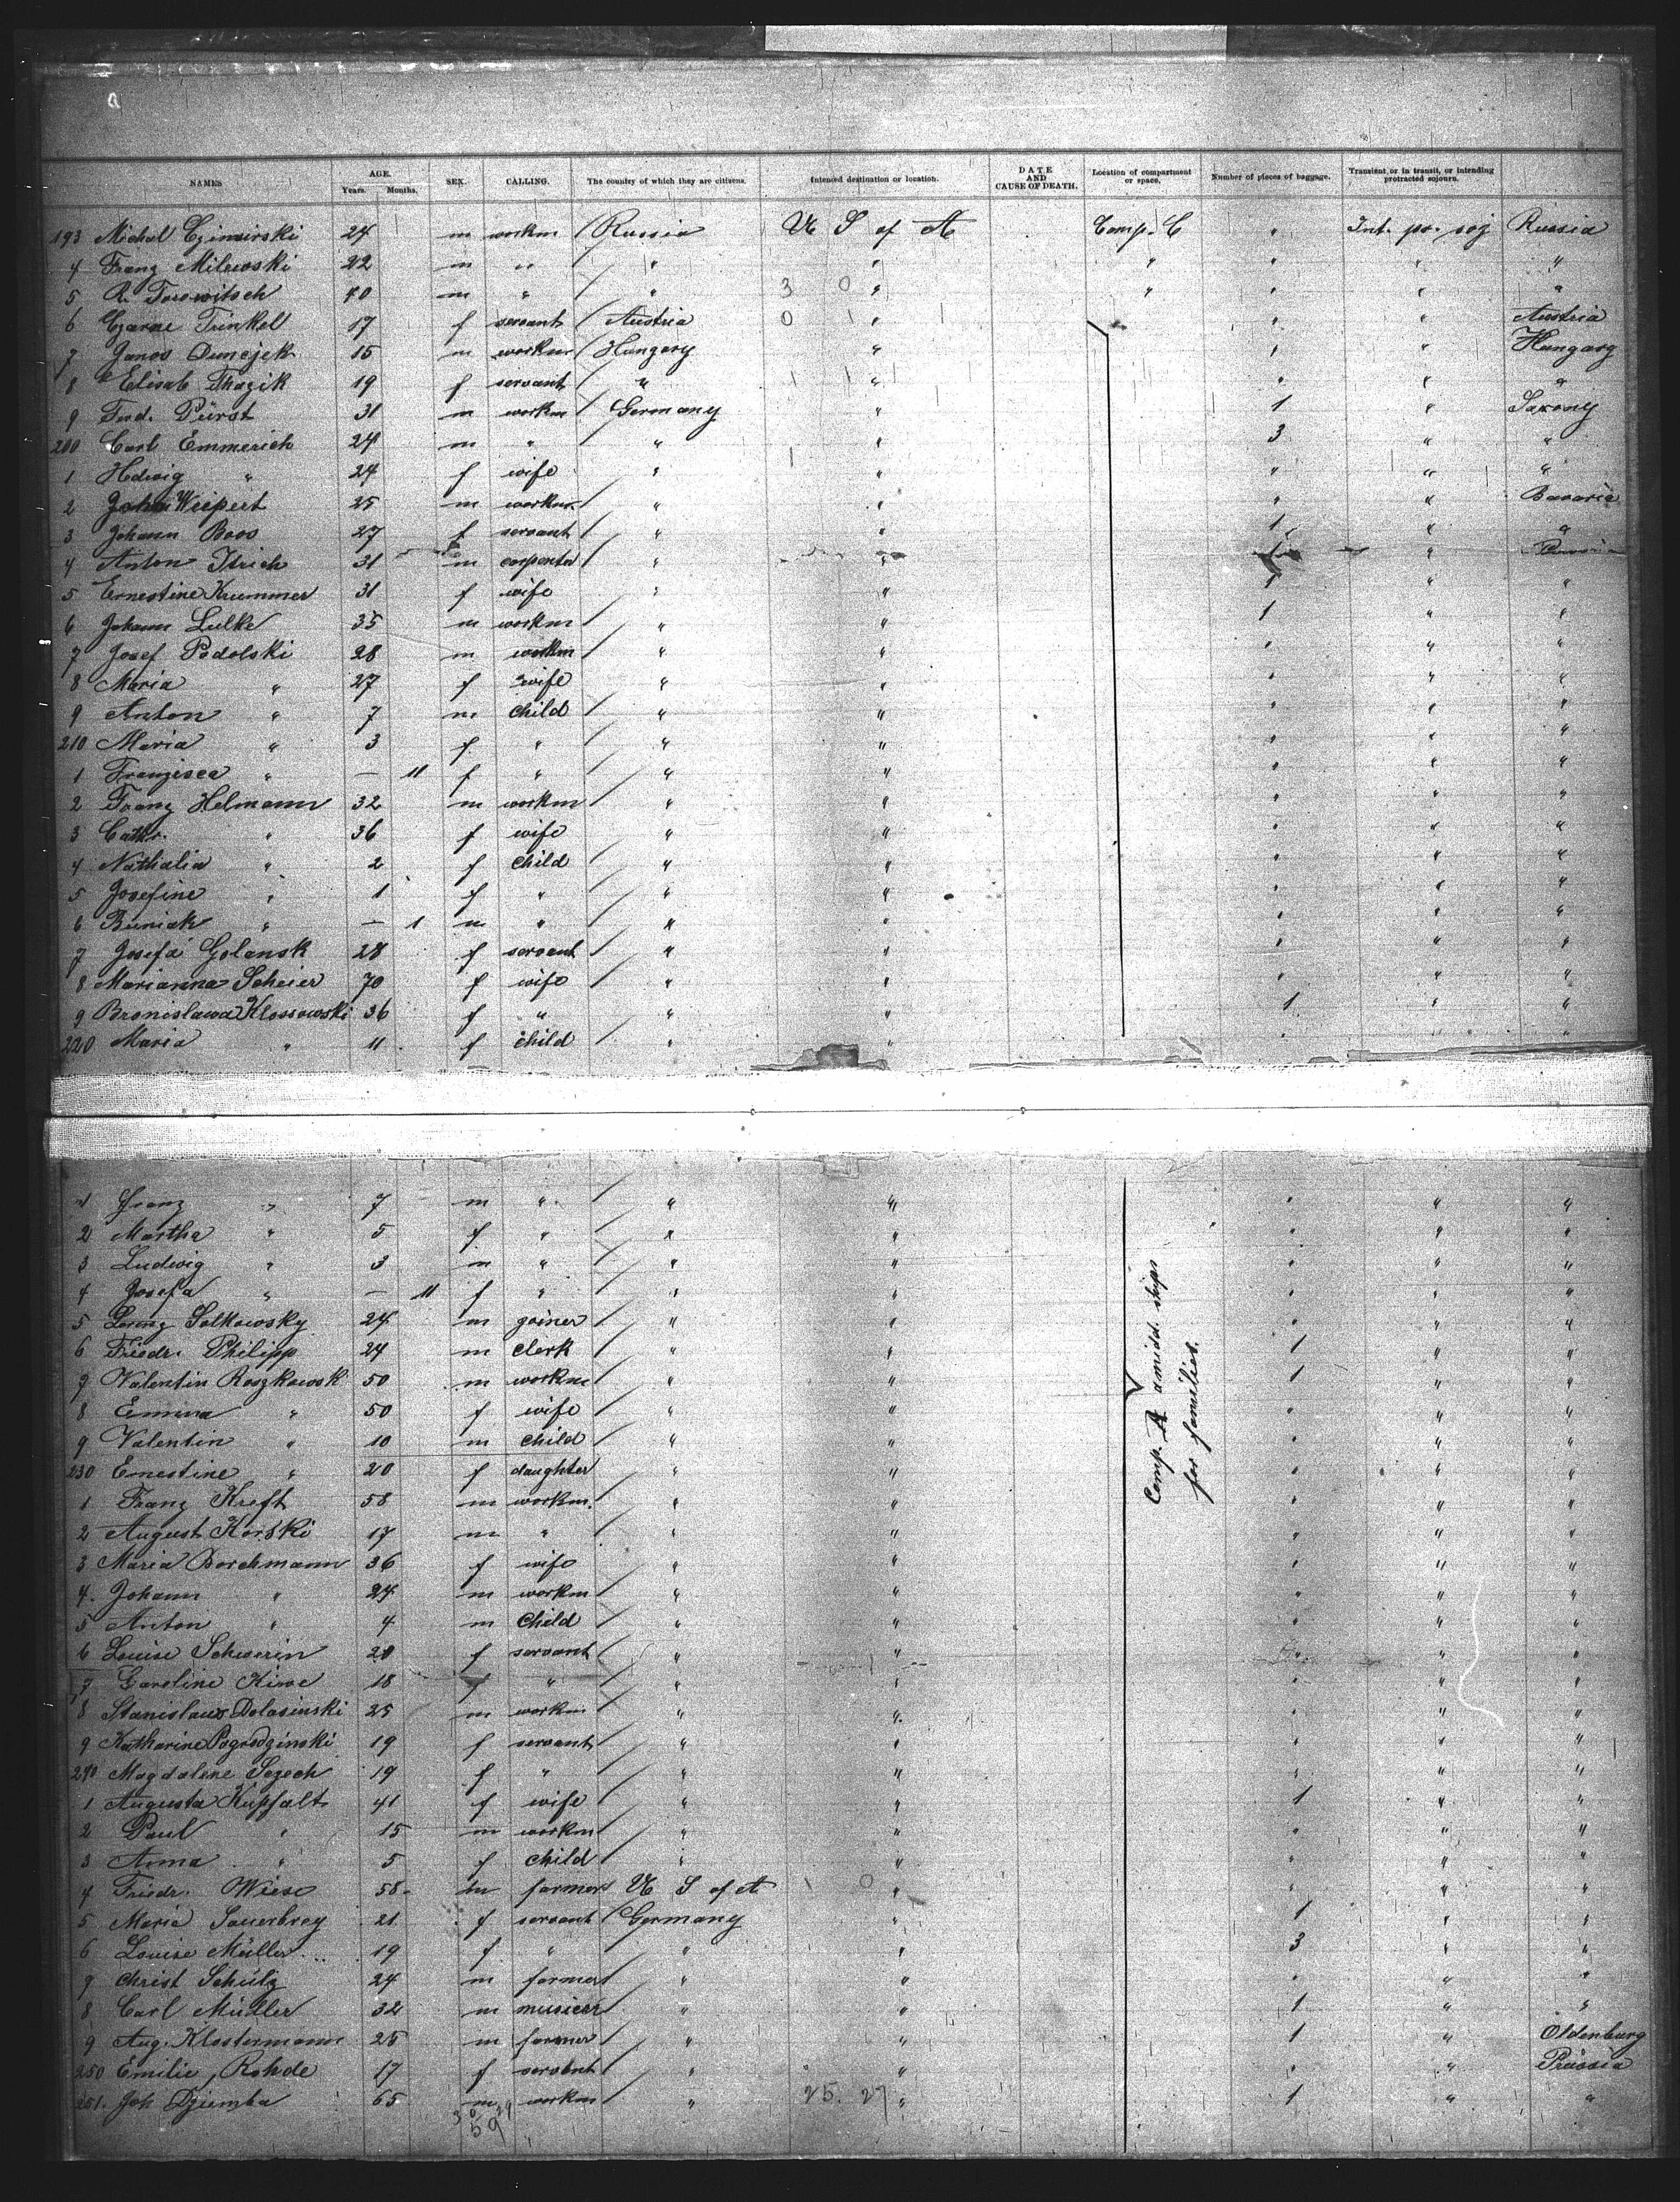 a
NAMES AGE. Years. Months. SEX. CALLING. The country of which they are citizens. Intended destination or location. DATE AND CAUSE OF DEATH. Location of compartment or space. Number of pieces of baggage. Transient, or in transit, or intending protracted sojourn.
193 Michal 24 m workm Russia U S of A Comp. C " Int. pr. soj Russia
4 Franz Milewski 22 m " " " " " " "
5 R. 40 m " " " " " " "
6 Trinkel 17 f servant Austria " " " Austria
7 Janos 15 m workm Hungary " 1 " Hungary
8 Elisab 19 f servant " " " " "
9 31 m workm Germany " 1 " Saxony
200 Carl Emmerich 24 m " " " 3 " "
1 Hedwig " 24 f wife " " " " "
2 Weipert 25 m workm " " " " Bavaria
3 Johann Boos 27 f servant " " 1 " "
4 Anton 31 m carpenter " " "
5 Ernestine Krummer 31 f wife " " 1 " "
6 Johann Lulke 35 m workm " " 1 " "
7 Josef Podolski 28 m workm " " " " "
8 Maria " 27 f wife " " " " "
9 Anton " 7 m child " " " " "
210 Maria " 3 f " " " " " "
1 Franzisca " — 11 f " " " " " "
2 Franz Helmann 32 m workm " " " " "
3 Cath. " 36 f wife " " " " "
4 Nathalia " 2 f child " " " " "
5 Josefine " 1 f " " " " " "
6 " — 1 m " " " " " "
7 Josefa Golansk 28 f servant " " " " "
8 Marianna Scheier 70 f wife " " " " "
9 Bronislawa Klossowski 36 f " " " 1 " "
220 Maria " 11 f child " " " " "
1 Franz " 7 m " " " " " "
2 Martha " 5 f " " " " " "
3 Ludwig " 3 m " " " " " "
4 Josefa " — 11 f " " " " " "
5 Solkowsky 24 m joiner " " " " "
6 Friedr. Philipp 24 m clerk " " 1 " "
7 Valentin Roszkowsk 50 m workm " " 1 " "
8 Emma " 50 f wife " " " " "
9 Valentin " 10 m child " " " " "
Comp. A amidd. ships
for families.
230 Ernestine " 20 f daughter " " " " "
1 Franz Kreft 58 m workm. " " " " "
2 August Korski 17 m " " " " " "
3 Maria Borchmann 36 f wife " " " " "
4. Johann " 24 m workm " " " " "
5 Anton " 4 m Child " " " " "
6 Louise Schwerin 20 f servant " " " " "
7 Caroline 18 f " " " " " "
8 Stanislaus Dolasinski 25 m workm " " " " "
9 Katharine Pogrodzinski 19 f servant " " " " "
240 Magdalene 19 f " " " " " "
1 Augusta 41 f wife " " 1 " "
2 Paul " 15 m workm " " " " "
3 Anna " 5 f child " " " " "
4 Friedr. Wiese 58 m farmer U S of A " " " "
5 Maria Sauerbrey 21 f servant Germany " 1 " "
6 Louise Müller 19 f " " " 3 " "
7 Christ Schülz 24 m farmer " " " " "
8 Carl Müller 32 m " " 1 " "
9 Aug. Klostermann 25 m farmer " " 1 " Oldenburg
250 Emilie Rohde 17 f servant " " " " Prussia
251. Joh Dziemba 65 m workm " 25. 27 " 1 " "
59